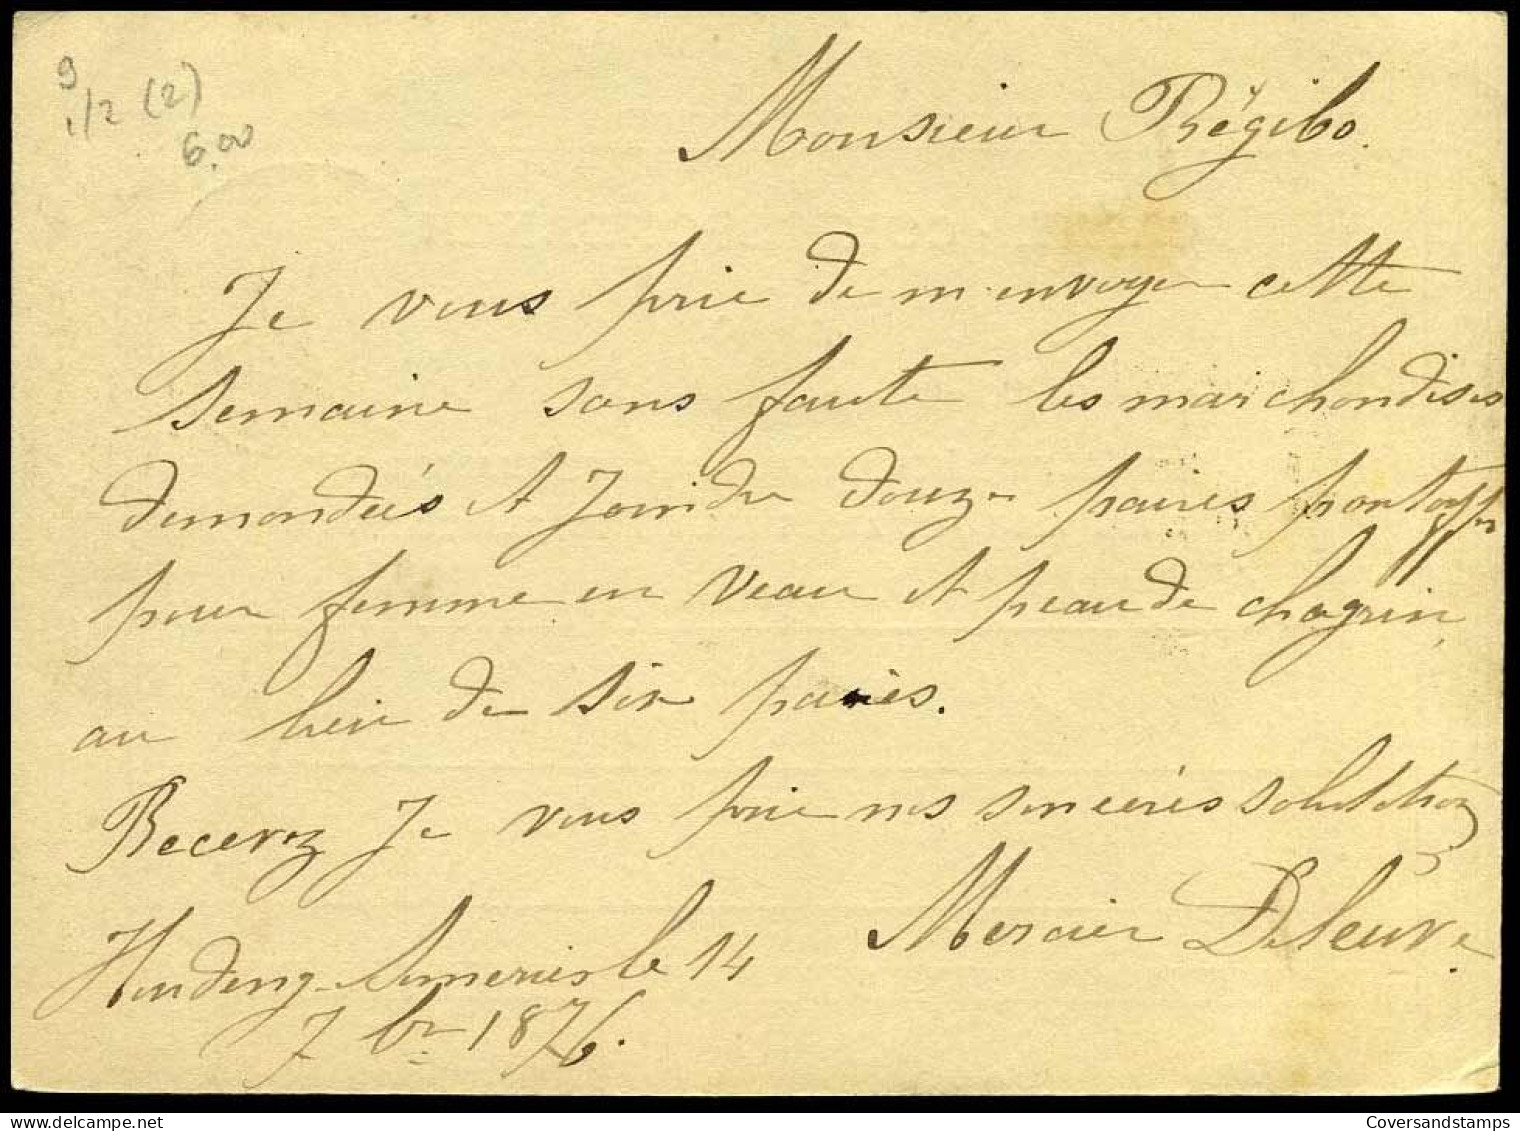 9
1/2 (2)
6.00
Monsieur Régibo.
Je vous prie de m'envoyer cette
semaine sans faute les marchandises
demandées et Joindre douze paires pantoffles
pour femme en veau et peau de chagrin,
au lieu de six paires.
Recevez Je vous prie nos sincères salutations
Mercier Deleuve.
Houdeng-Aimeries le 14
7bre 1876.
Coversandstamps.com